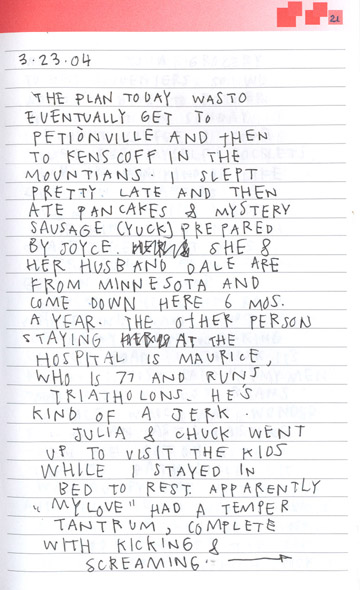 21
3.23.04
THE PLAN TODAY WAS TO
EVENTUALLY GET TO
PETIÒNVILLE AND THEN
TO KENSCOFF IN THE
MOUNTIANS. I SLEPT
PRETTY LATE AND THEN
ATE PANCAKES & MYSTERY
SAUSAGE (YUCK) PREPARED
BY JOYCE. SHE &
HER HUSBAND DALE ARE
FROM MINNESOTA AND
COME DOWN HERE 6 MOS.
A YEAR. THE OTHER PERSON
STAYING AT THE
HOSPITAL IS MAURICE,
WHO IS 77 AND RUNS
TRIATHOLONS. HE'S
KIND OF A JERK.
JULIA & CHUCK WENT
UP TO VISIT THE KIDS
WHILE I STAYED IN
BED TO REST. APPARENTLY
"MY LOVE" HAD A TEMPER
TANTRUM, COMPLETE
WITH KICKING &
SCREAMING. →